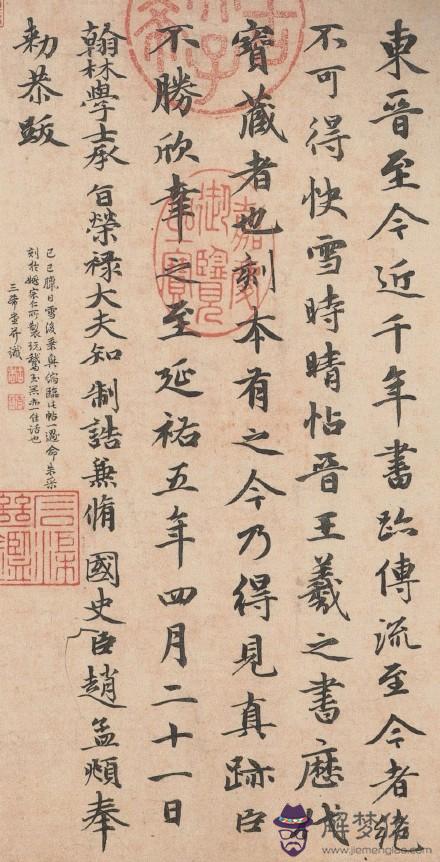 東晉至今近千年書跡傳流至今者絕
不可得快雪時晴帖晉王羲之書歷代
寶藏者也刻本有之今乃得見真跡臣
不勝欣幸之至延祐五年四月二十一日
翰林學士承旨榮祿大夫知制誥兼脩國史臣趙孟頫奉
勑恭跋
己巳臘日雪後乘興偶臨此帖一過命朱采
刻於姚宗仁所製玩鵞玉器亦一佳話也
三希堂并識
嘉慶御覽之寶
解梦佬
www.jiemenglao.com